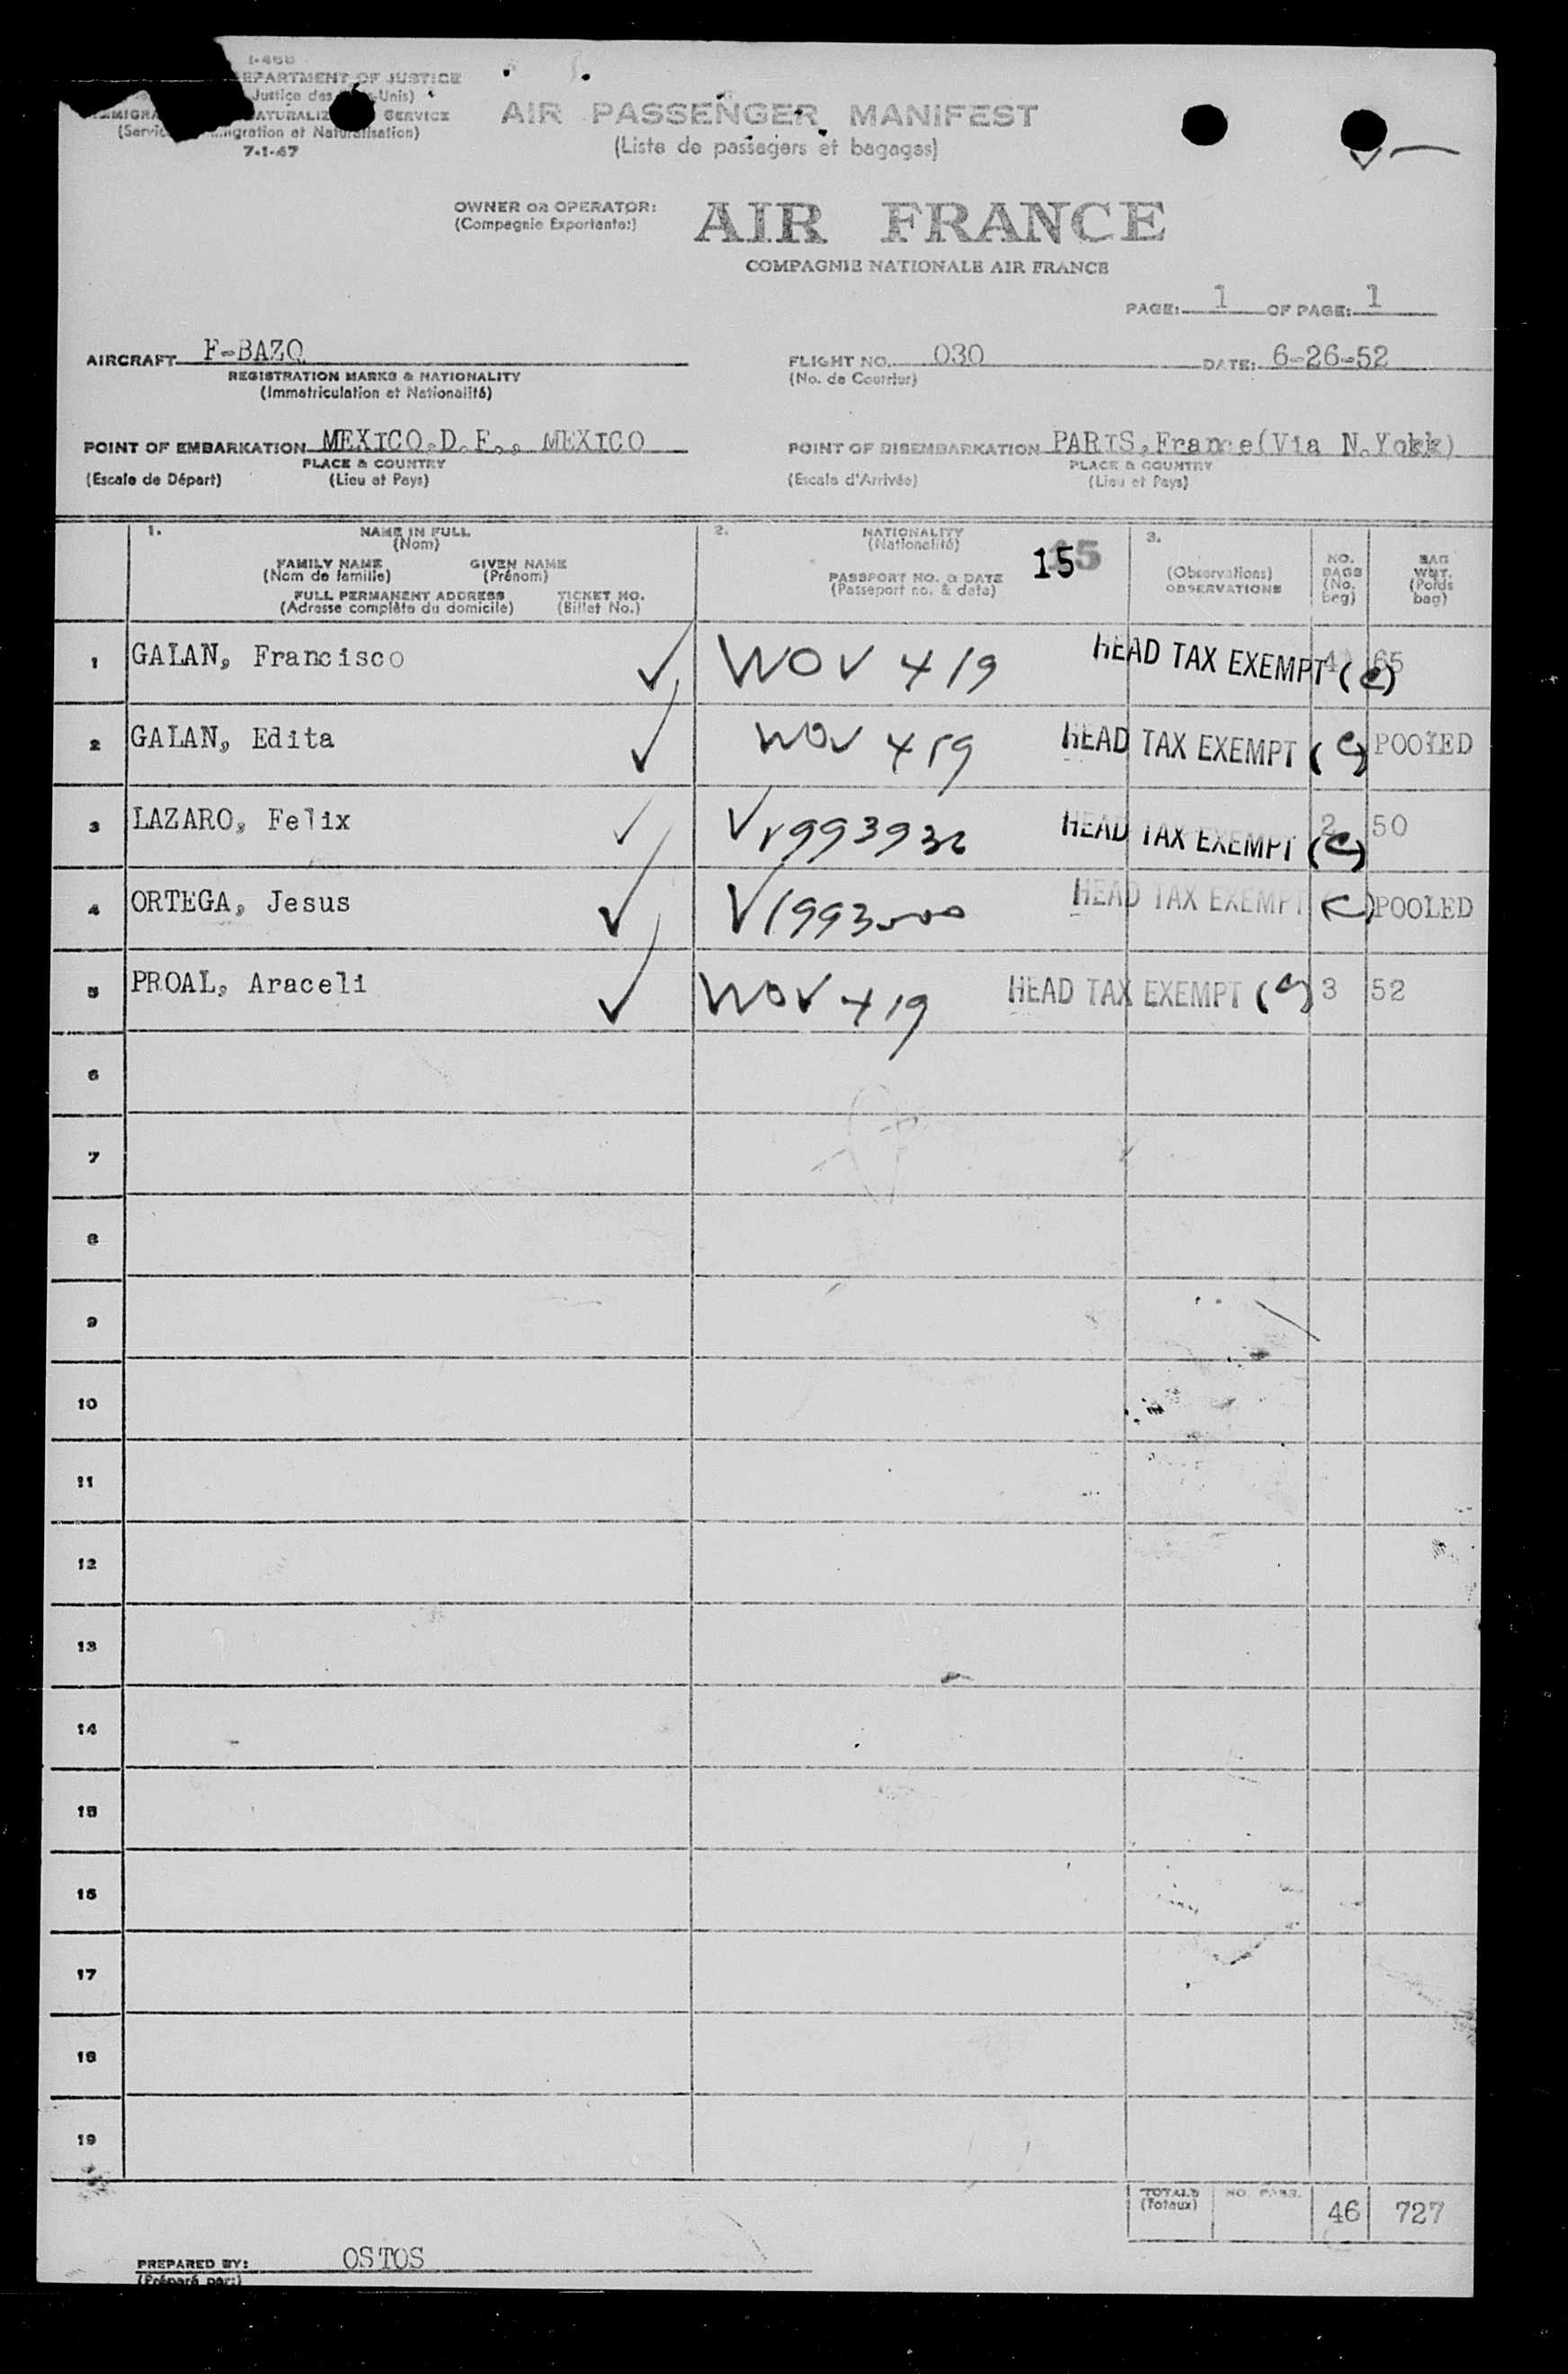 I-466
DEPARTMENT OF JUSTICE
Justice des Unis)
SERVICE
7-1-47
AIR PASSENGER MANIFEST
(Liste de passagers et bagages)
OWNER OR OPERATOR:
(Compagnie Exportante:)
AIR FRANCE
COMPAGNIE NATIONALE AIR FRANCE
PAGE: 1 OF PAGE: 1
AIRCRAFT F-BAZQ
REGISTRATION MARKS & NATIONALITY
(Immatriculation et Nationalité)
FLIGHT NO. 030 DATE: 6-26-52
(No. de Courrier)
POINT OF EMBARKATION MEXICO.D.F., MEXICO
PLACE & COUNTRY
(Escale de Départ) (Lieu et Pays)
POINT OF DISEMBARKATION PARIS,France(Via N.Yokk)
PLACE & COUNTRY
(Escale d'Arrivée) (Lieu et Pays)
1. NAME IN FULL
(Nom)
FAMILY NAME GIVEN NAME
(Nom de famille) (Prénom)
FULL PERMANENT ADDRESS TICKET NO.
(Adresse complète du domicile) (Billet No.)
2. NATIONALITY
(Nationalité)
PASSPORT NO. & DATE
(Passeport no. & date)
15 15
3.
(Observations)
OBSERVATIONS
NO.
BAGS
(No.
beg)
BAG
WHT.
(Poids
bag)
1 GALAN, Francisco WOV 419 HEAD TAX EXEMPT (C) 4 65
2 GALAN, Edita WOV 419 HEAD TAX EXEMPT (C) POOLED
3 LAZARO, Felix HEAD TAX EXEMPT (C) 2 50
4 ORTEGA, Jesus HEAD TAX EXEMPT (C) POOLED
5 PROAL, Araceli WOV 419 HEAD TAX EXEMPT (C) 3 52
6
7
8
9
10
11
12
13
14
15
16
17
18
19
TOTALS NO. PASS. 46 727
(Totaux)
PREPARED BY: OSTOS
(Préparé par:)